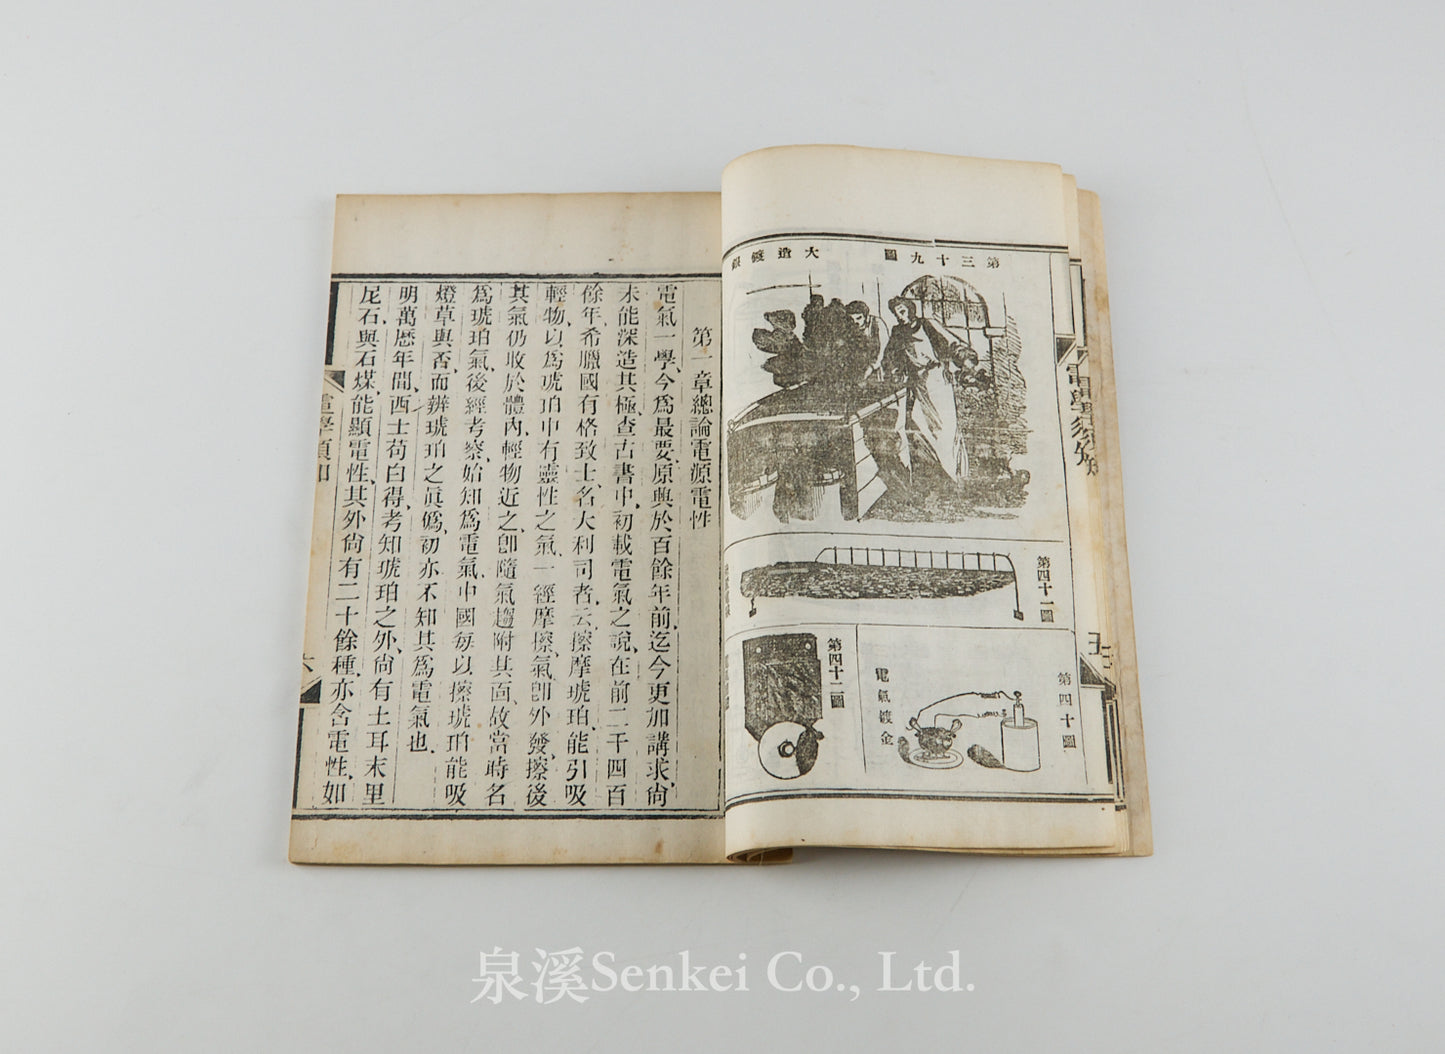 第三十九圖
大造鍍銀
第四十一圖
第四十圖
電氣鍍金
第四十二圖
電學須知
五
第一章總論電源電性
電氣一學、今爲最要、原興於百餘年前、迄今更加講求、尙
未能深造其極、查古書中、初載電氣之說、在前二千四百
餘年、希臘國有格致士、名大利司者、云擦摩琥珀、能引吸
輕物、以爲琥珀中有靈性之氣、一經摩擦、氣卽外發、擦後
其氣仍收於體內、輕物近之、卽隨氣趨附其面、故當時名
爲琥珀氣、後經考察、始知爲電氣、中國每以擦琥珀能吸
燈草與否、而辨琥珀之眞僞、初亦不知其爲電氣也、
明萬歷年間、西士苟白得、考知琥珀之外、尙有土耳末里
尼石與石煤、能顯電性、其外尙有二十餘種、亦含電性、如
電學須知
六
泉溪Senkei Co., Ltd.